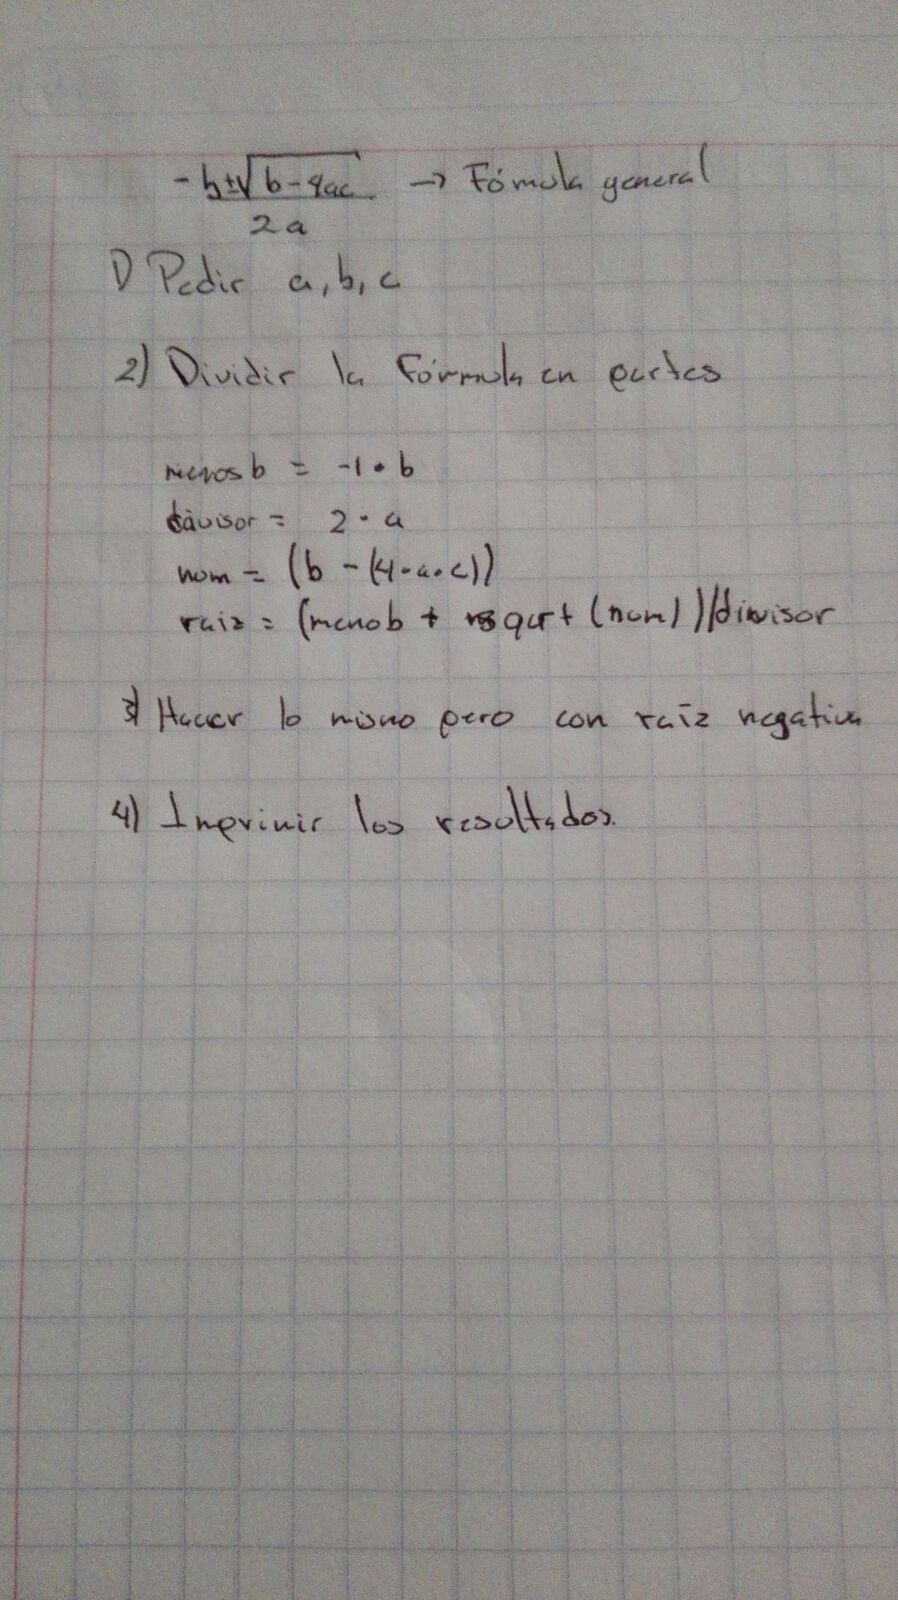 -b±√b-4ac → Fómula general
2a
1) Pedir a, b, c
2) Dividir la Fórmula en partes
menosb = -1 · b
divisor = 2 · a
num = (b - (4·a·c))
raiz = (menob + sqrt (num))/divisor
3) Hacer lo mismo pero con raíz negativa
4) Imprimir los resultados.